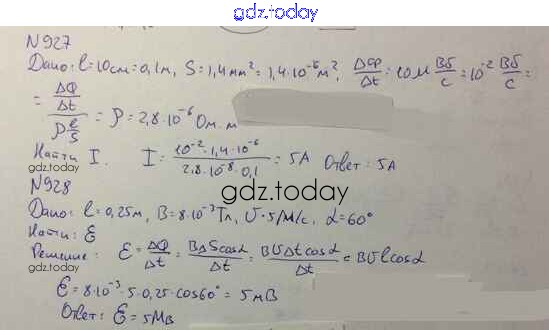 gdz.today
N927
Дано: l=10см=0,1м, S=1,4мм²=1,4·10⁻⁶м², ΔФ/Δt=10м Вб/с=10⁻² Вб/с=
= (ΔФ/Δt)/(ρ l/S) = ρ=2,8·10⁻⁶ Ом·м
Найти I. I= (10⁻²·1,4·10⁻⁶)/(2,8·10⁻⁸·0,1) = 5A Ответ: 5A
gdz.today
N928
gdz.today
Дано: l=0,25м, B=8·10⁻³Тл, υ·5/М/с, α=60°
Найти: Ɛ
Решение: Ɛ=ΔФ/Δt=BΔScosα/Δt=BυlΔtcosα/Δt=Bυlcosα
gdz.today
Ɛ=8·10⁻³·5·0,25·cos60°=5мВ
Ответ: Ɛ=5Мв
gdz.today